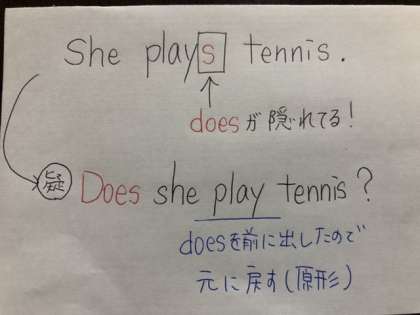 She plays tennis.
doesが隠れてる!
疑 Does she play tennis?
doesを前に出したので
元に戻す(原形)